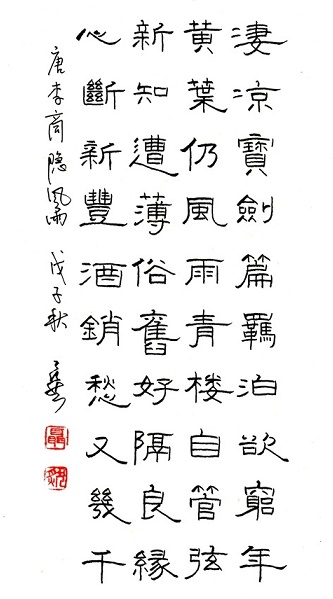 淒涼寶劍篇羈泊欲窮年
黄葉仍風雨青楼自管弦
新知遭薄俗舊好隔良緣
心斷新豐酒銷愁又幾千
唐李商隐風雨 戊子秋